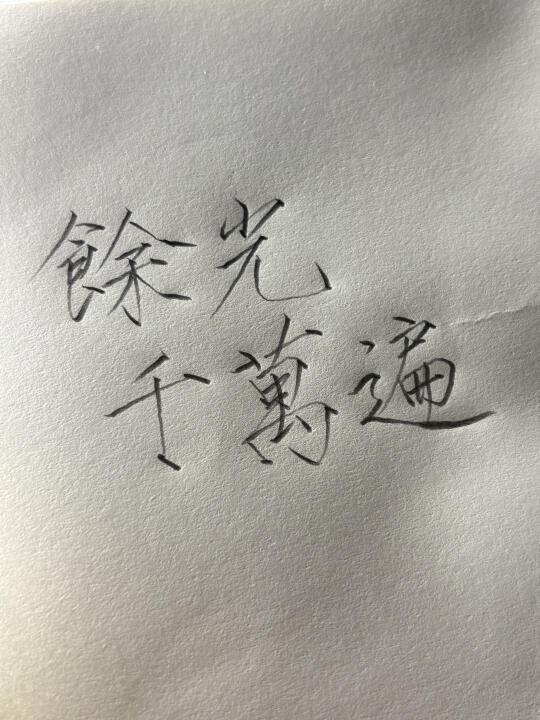 餘光
千萬遍